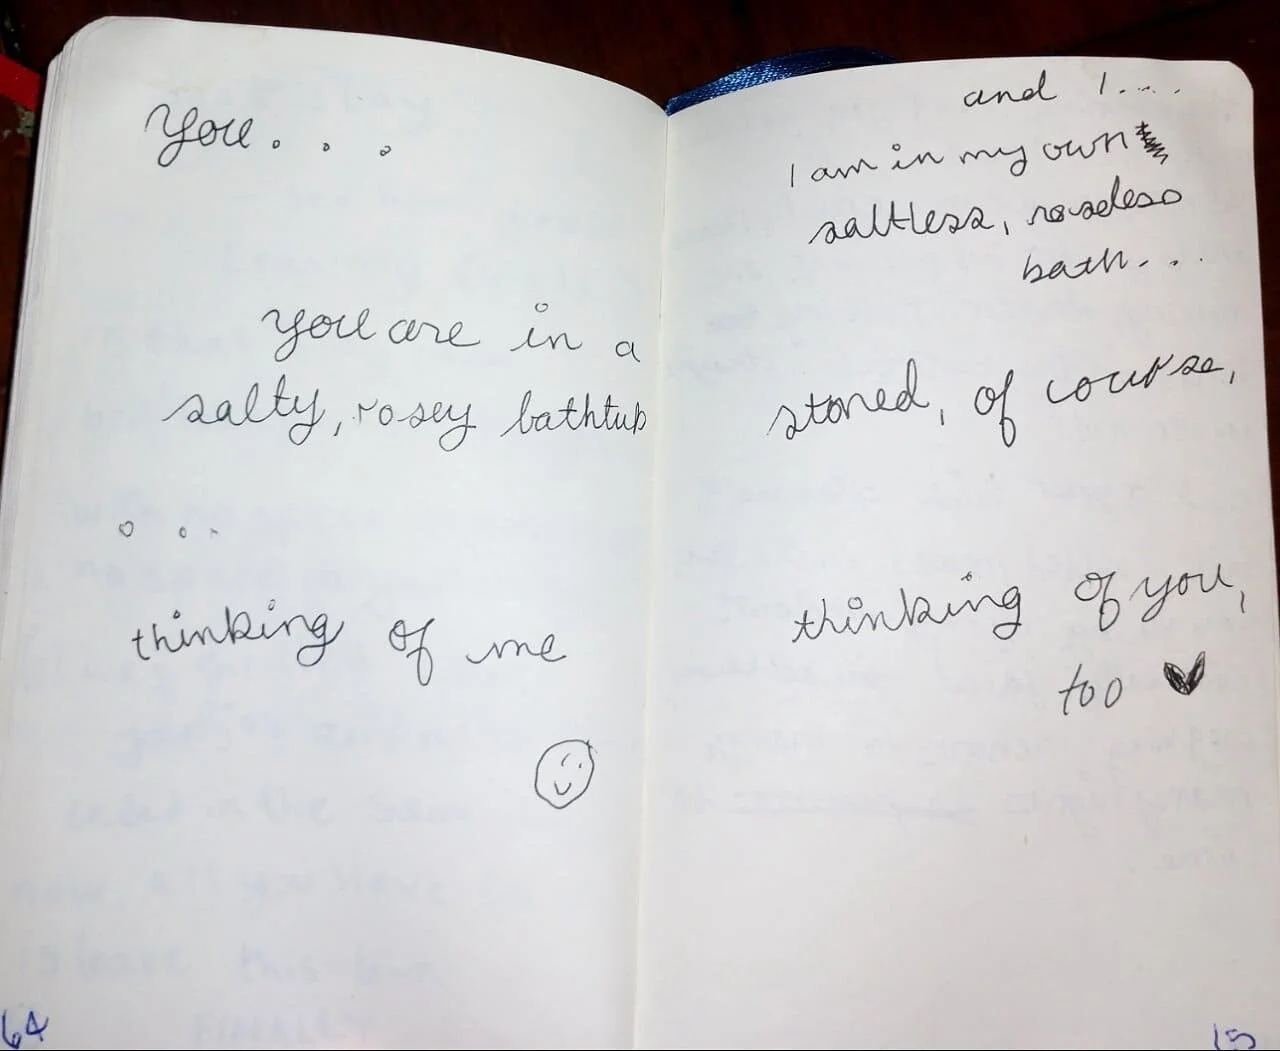 You...
you are in a
salty, rosey bathtub
...
thinking of me
64
and I....
I am in my own
saltless, roseless
bath...
stoned, of course,
thinking of you,
too ♥